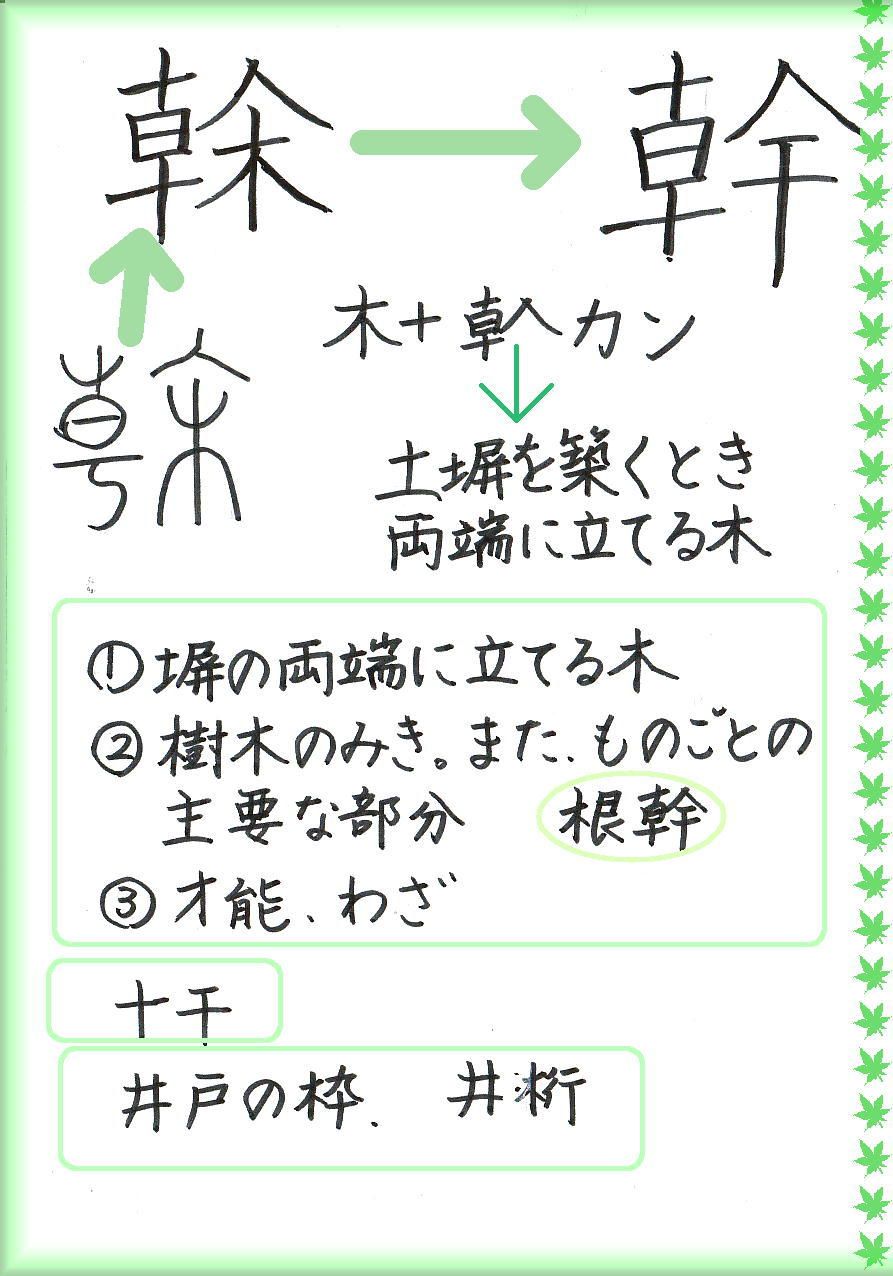 榦 幹
木+倝カン
土塀を築くとき
両端に立てる木
①塀の両端に立てる木
②樹木のみき。また、ものごとの
主要な部分 根幹
③才能、わざ
十干
井戸の枠、井桁